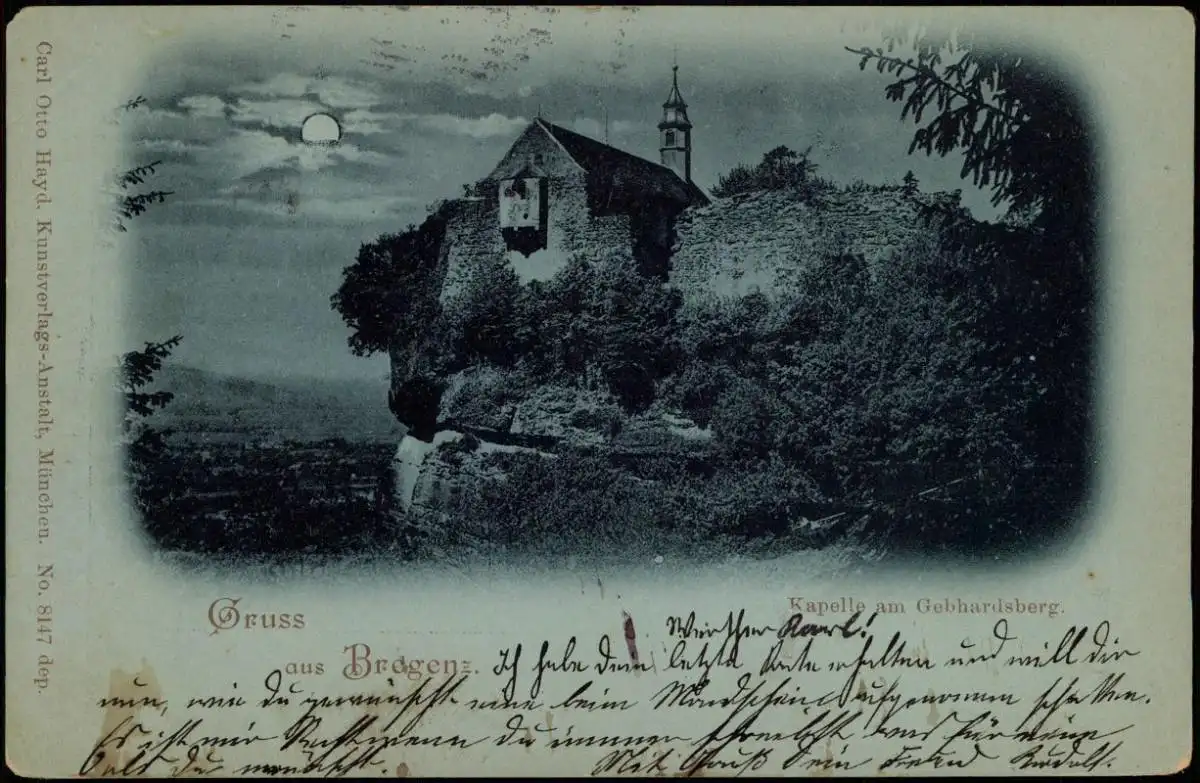 Carl Otto Hayd. Kunstverlags-Anstalt, München. No. 8147 dep.
Gruss
aus Bregenz.
Kapelle am Gebhardsberg.
Werther Karl!
Ich habe dein letzte Karte erhalten und will dir
nun, wie du gewünscht eine beim Mondschein aufgenommen schicken.
Es ist mir Recht wenn du immer schreibst was für eine
du
Mit Gruß Dein Freund Rudolf.